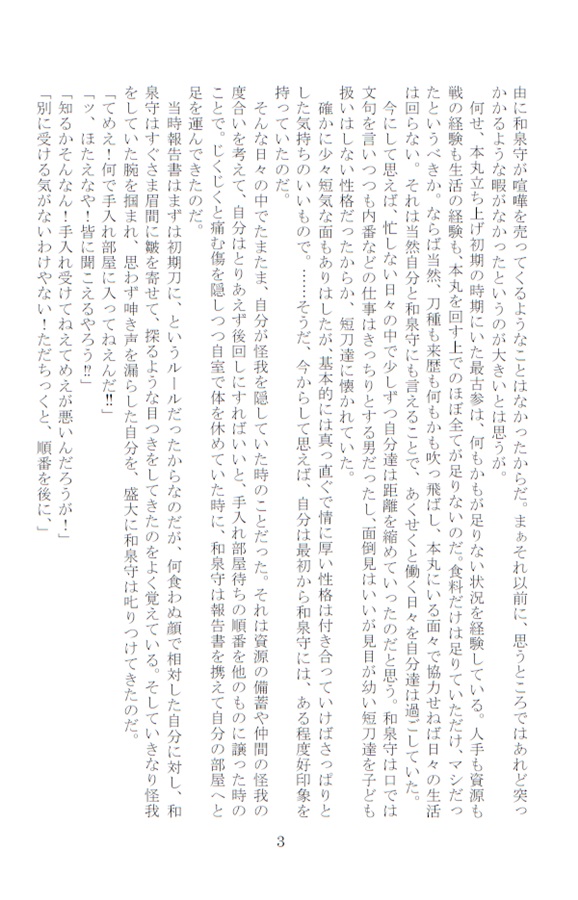 由に和泉守が喧嘩を売ってくるようなことはなかったからだ。まぁそれ以前に、思うところではあれど突っ
かかるような暇がなかったというのが大きいとは思うが。
　何せ、本丸立ち上げ初期の時期にいた最古参は、何もかもが足りない状況を経験している。人手も資源も
戦の経験も生活の経験も、本丸を回す上でのほぼ全てが足りないのだ。食料だけは足りていただけ、マシだっ
たというべきか。ならば当然、刀種も来歴も何もかも吹っ飛ばし、本丸にいる面々で協力せねば日々の生活
は回らない。それは当然自分と和泉守にも言えることで、あくせくと働く日々を自分達は過ごしていた。
　今にして思えば、忙しない日々の中で少しずつ自分達は距離を縮めていったのだと思う。和泉守は口では
文句を言いつつも内番などの仕事はきっちりとする男だったし、面倒見はいいが見目が幼い短刀達を子ども
扱いはしない性格だったからか、短刀達に懐かれていた。
　確かに少々短気な面もありはしたが、基本的には真っ直ぐで情に厚い性格は付き合っていけばさっぱりと
した気持ちのいいもので。……そうだ、今からして思えば、自分は最初から和泉守には、ある程度好印象を
持っていたのだ。
　そんな日々の中でたまたま、自分が怪我を隠していた時のことだった。それは資源の備蓄や仲間の怪我の
度合いを考えて、自分はとりあえず後回しにすればいいと、手入れ部屋待ちの順番を他のものに譲った時の
ことで。じくじくと痛む傷を隠しつつ自室で体を休めていた時に、和泉守は報告書を携えて自分の部屋へと
足を運んできたのだ。
　当時報告書はまずは初期刀に、というルールだったからなのだが、何食わぬ顔で相対した自分に対し、和
泉守はすぐさま眉間に皺を寄せて、探るような目つきをしてきたのをよく覚えている。そしていきなり怪我
をしていた腕を掴まれ、思わず呻き声を漏らした自分を、盛大に和泉守は叱りつけてきたのだ。
「てめえ！何で手入れ部屋に入ってねえんだ‼」
「ッ、ほたえなや！皆に聞こえるやろう⁉」
「知るかそんなん！手入れ受けてねえてめえが悪いんだろうが！」
「別に受ける気がないわけやない！ただちっくと、順番を後に、」
3